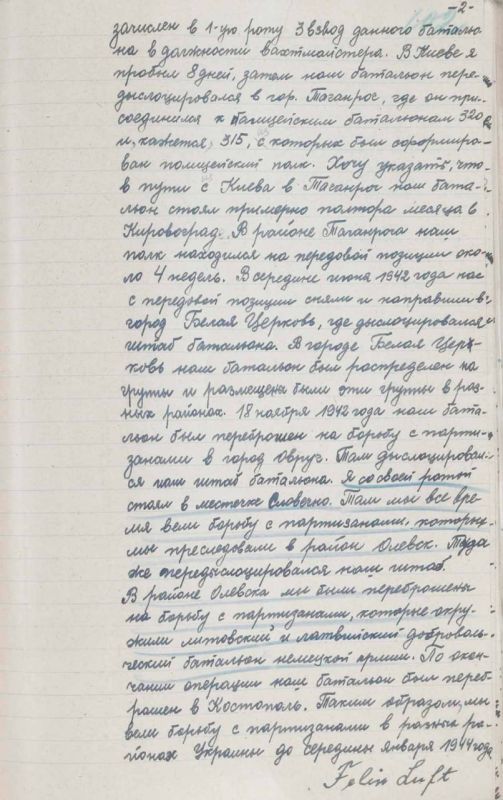 -2-
зачислен в 1-ую роту 3 взвод данного баталью
на в должности вахтмайстера. В Киеве я
пробыл 8 дней, затем наш батальон пере-
дыслоцировался в гор. Таганрог, где он при-
соединился к полицейским батальонам 320
и, кажется, 315, с которых был сформиро-
ван полицейский полк. Хочу указать, что
в пути с Киева в Таганрог наш бата-
льон стоял примерно полтора месяца в
Кировоград. В районе Таганрога наш
полк находился на передовой позиции око-
ло 4 недель. В середине июня 1942 года нас
с передовой позиции сняли и направили в
город Белая Церковь, где дыслоцировался
штаб батальона. В городе Белая Цер-
ковь наш батальон был распределен на
группы и размещены были эти группы в раз-
ных районах. 18 ноября 1942 года наш бата-
льон был переброшен на борьбу с парти-
занами в город Овруг. Там дыслоцировал-
ся наш штаб батальона. Я со своей ротой
стоял в местечке Словечно. Там мы все вре-
мя вели борьбу с партизанами, которых
мы преследовали в район Олевск. Туда
же передыслоцировался наш штаб.
В районе Олевска мы были переброшены
на борьбу с партизанами, которые окру-
жили литовский и латвийский доброволь-
ческий батальон немецкой армии. По окон-
чании операции наш батальон был переб-
рошен в Костополь. Таким образом, мы
вели борьбу с партизанами в разных ра-
йонах Украины до середины января 1944 года
Felix Luft